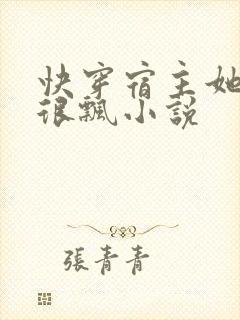 快穿宿主她
很飄小説
張青青